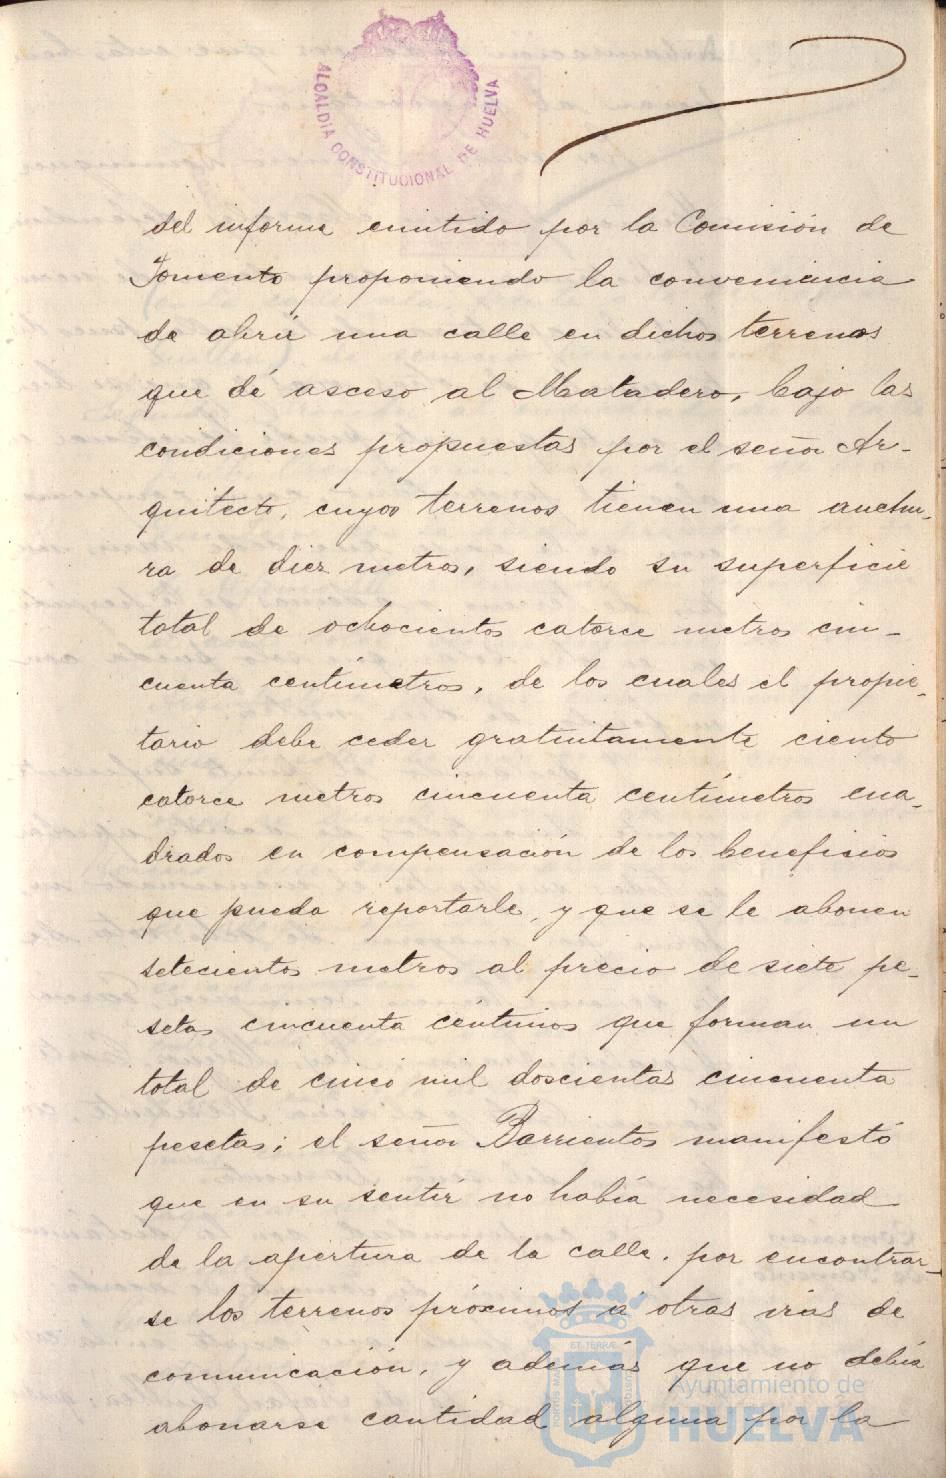 ALCALDIA CONSTITUCIONAL DE HUELVA
del informe emitido por la Comisión de
Fomento proponiendo la conveniencia
de abrir una calle en dichos terrenos
que dé asceso al Matadero, bajo las
condiciones propuestas por el señor Ar-
quitecto, cuyos terrenos tienen una anchu-
ra de diez metros, siendo su superficie
total de ochocientos catorce metros cin-
cuenta centímetros, de los cuales el propie-
tario debe ceder gratuitamente ciento
catorce metros cincuenta centímetros cua-
drados en compensación de los beneficios
que pueda reportarle, y que se le abonen
setecientos metros al precio de siete pe-
setas cincuenta céntimos que forman un
total de cinco mil doscientas cincuenta
pesetas; el señor Barrientos manifestó
que en su sentir no había necesidad
de la apertura de la calle, por encontrar-
se los terrenos próximos á otras vías de
comunicación, y además que no debía
abonarse cantidad alguna por la
Ayuntamiento de
HUELVA